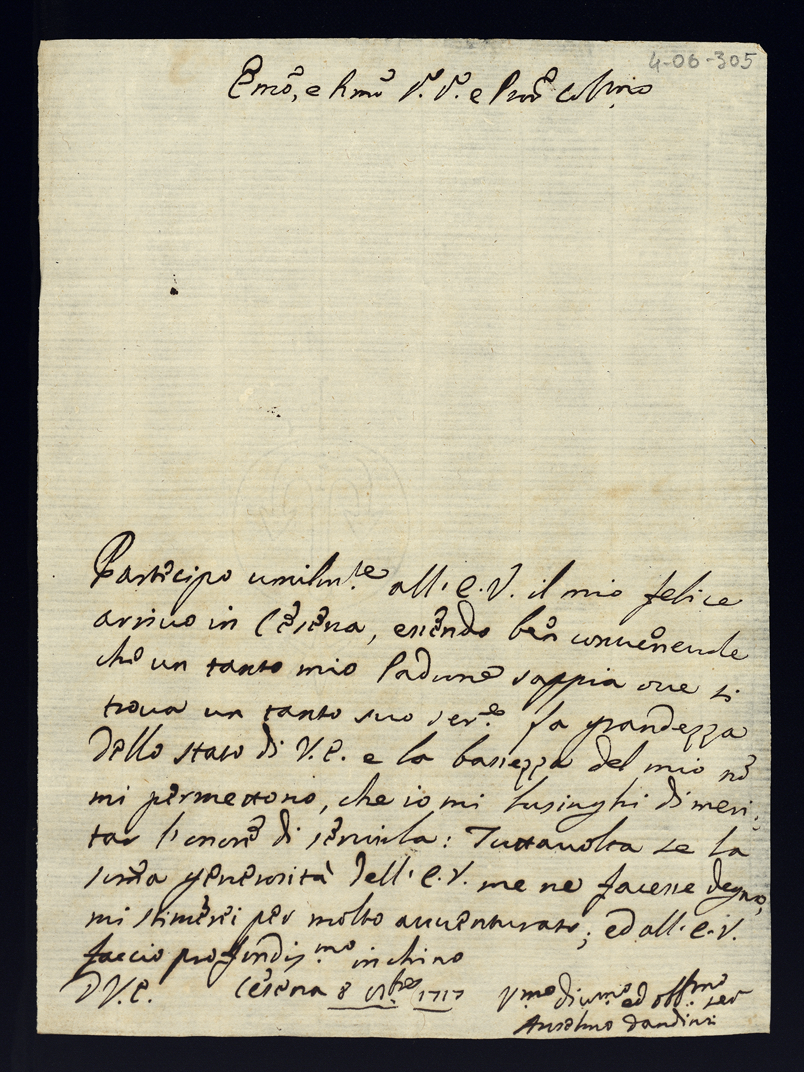 4-06-305
Emo, e Rmo Sr. Sr. e Pron Colmo
Participo umilmte all'E.V. il mio felice
arrivo in Cesena, essendo ben convenevole
che un tanto mio Padrone sappia ove si
trova un tanto suo serre. La grandezza
dello stato di V.E. e la bassezza del mio nõ
mi permettono, che io mi lusinghi di meri,
tar l'onore di servirla: Tuttavolta se la
somma generosità dell'E.V. me ne facesse degno,
mi stimerei per molto avventurato; ed all'E.V.
faccio profondissmo inchino
D V.E. Cesena 8 1717 Vmo Divmo ed Obbmo ser
Anselmo Dandini